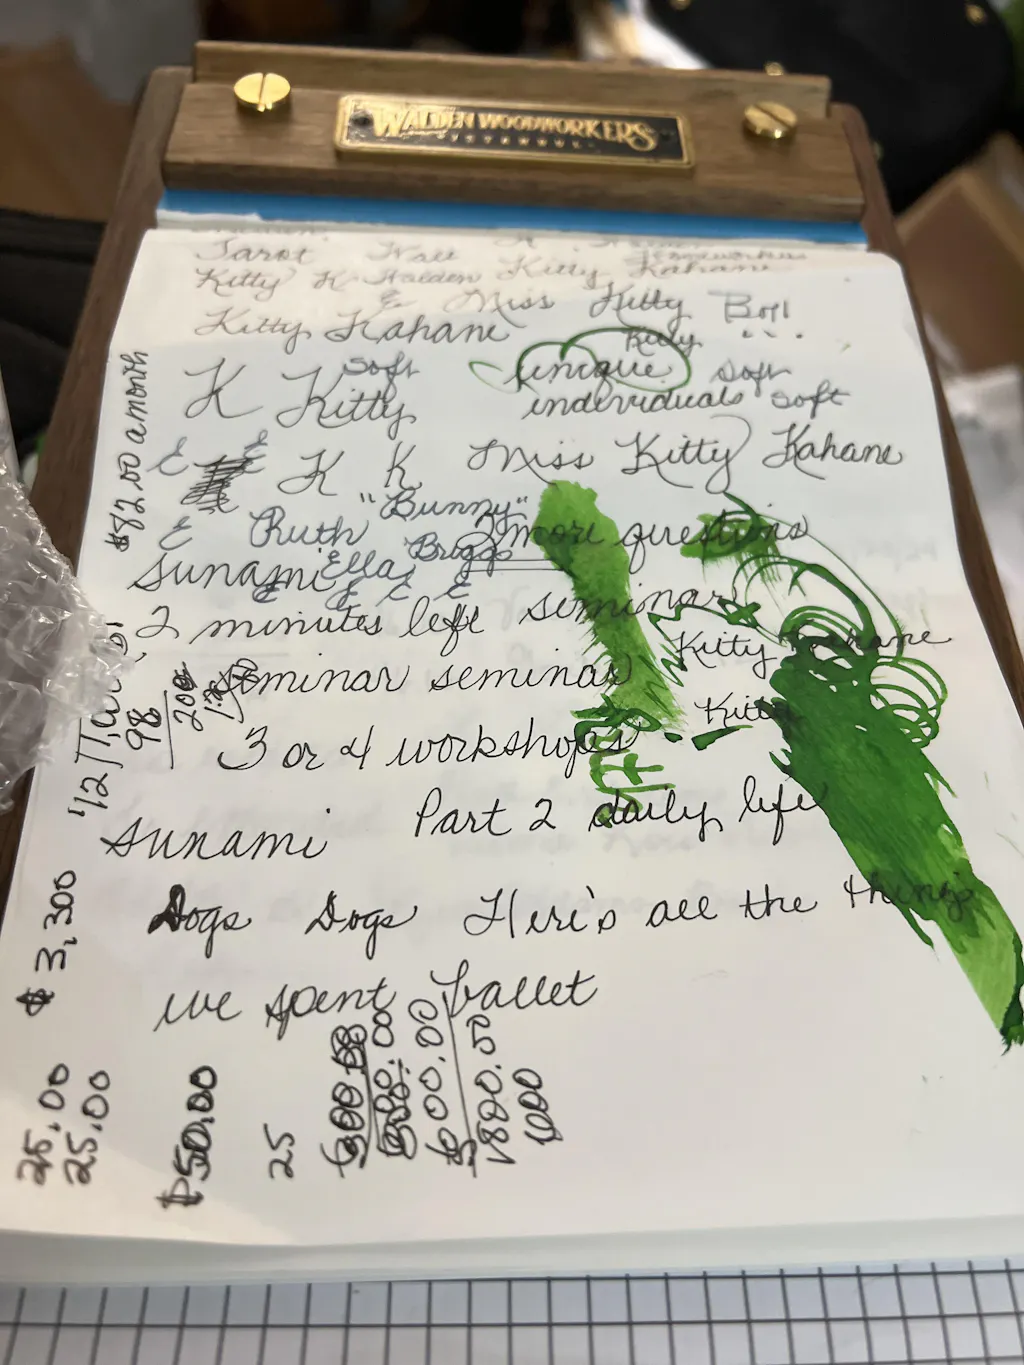 WALDEN WOODWORKERS
Tarot
Kitty K Halden Kitty Kahane
& Miss Kitty Bo!!
Kitty Kahane Kitty ...
soft unique soft
K Kitty individuals soft
E E K K Miss Kitty Kahane
"Bunny"
E Ruth 2 more questions
Briggs
sunami Ella
E E E E
2 minutes left seminar
Kitty Kahane
seminar seminar
Kitty
3 or 4 workshops
sunami Part 2 daily life
Dogs Dogs Here's all the things
we spent ballet
$82.00 a month
98
200
$3,300
25.00
25.00
$50.00
25
600.00
600.00
1800.50
1000